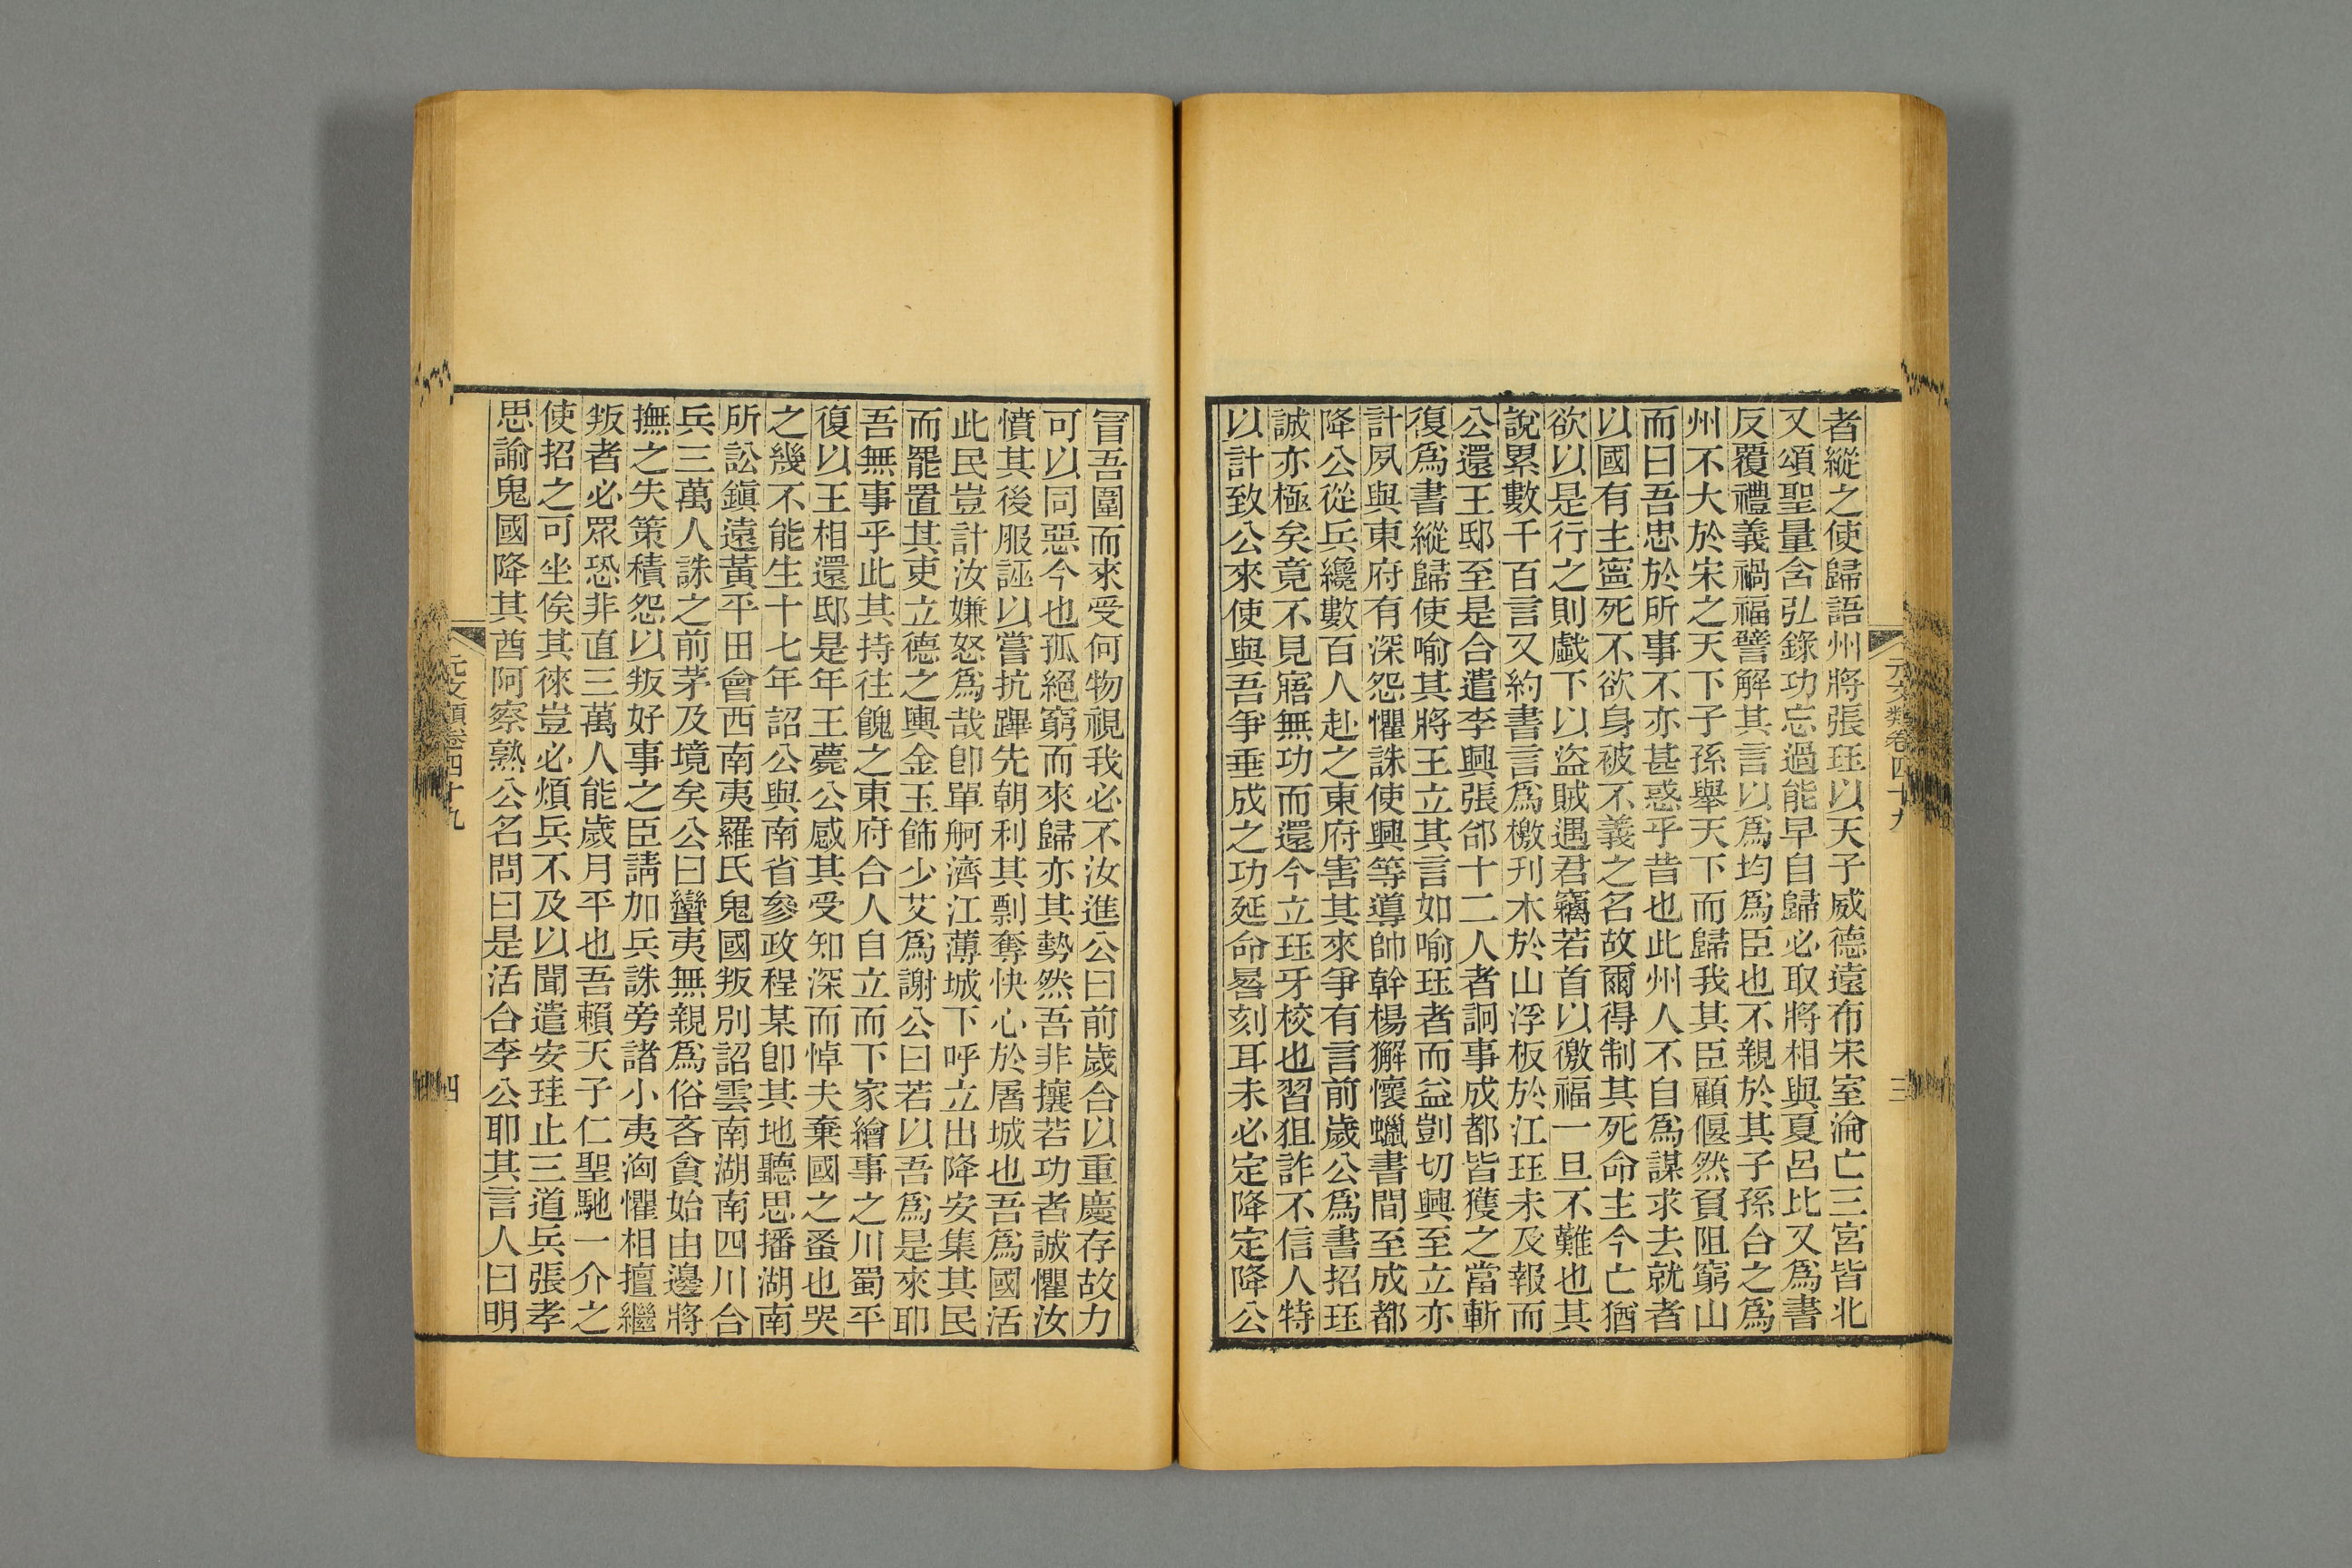 元文類卷四十九
三
者縱之使歸語州將張珏以天子威德遠布宋室淪亡三宮皆北
又頌聖量含弘錄功忘過能早自歸必取將相與夏呂比又爲書
反覆禮義禍福譬解其言以爲均爲臣也不親於其子孫台之爲
州不大於宋之天下子孫舉天下而歸我其臣顧偃然負阻窮山
而曰吾忠於所事不亦甚惑乎昔也此州人不自爲謀求去就者
以國有主寧死不欲身被不義之名故爾得制其死命主今亡猶
欲以是行之則戱下以盜賊遇君竊若首以徼福一旦不難也其
說累數千百言又約書言爲檄刋木於山浮板於江珏未及報而
公還王邸至是合遣李興張郃十二人者詗事成都皆獲之當斬
復爲書縱歸使喻其將王立其言如喻珏者而益剴切興至立亦
計夙與東府有深怨懼誅使興等導帥幹楊獬懷蠟書間至成都
降公從兵纔數百人赴之東府害其來爭有言前歲公爲書招珏
誠亦極矣竟不見寤無功而還今立珏牙校也習狙詐不信人特
以計致公來使與吾爭垂成之功延命晷刻耳未必定降定降公
冒吾圍而來受何物視我必不汝進公曰前歲合以重慶存故力
可以同惡今也孤絕窮而來歸亦其勢然吾非攘若功者誠懼汝
憤其後服誣以嘗抗蹕先朝利其剽奪快心於屠城也吾爲國活
此民豈計汝嫌怒爲哉卽單舸濟江薄城下呼立出降安集其民
而罷置其吏立德之輿金玉飾少艾爲謝公曰若以吾爲是來耶
吾無事乎此其持往餽之東府合人自立而下家繪事之川蜀平
復以王相還邸是年王薨公感其受知深而悼夫棄國之蚤也哭
之幾不能生十七年詔公與南省參政程某卽其地聽思播湖南
所訟鎭遠黃平田會西南夷羅氏鬼國叛別詔雲南湖南四川合
兵三萬人誅之前茅及境矣公曰蠻夷無親爲俗吝貪始由邊將
撫之失策積怨以叛好事之臣請加兵誅旁諸小夷洶懼相擅繼
叛者必眾恐非直三萬人能歲月平也吾賴天子仁聖馳一介之
使招之可坐俟其徠豈必煩兵不及以聞遣安珪止三道兵張孝
思諭鬼國降其酋阿察熟公名問曰是活合李公耶其言人曰明
元文類卷四十九
四